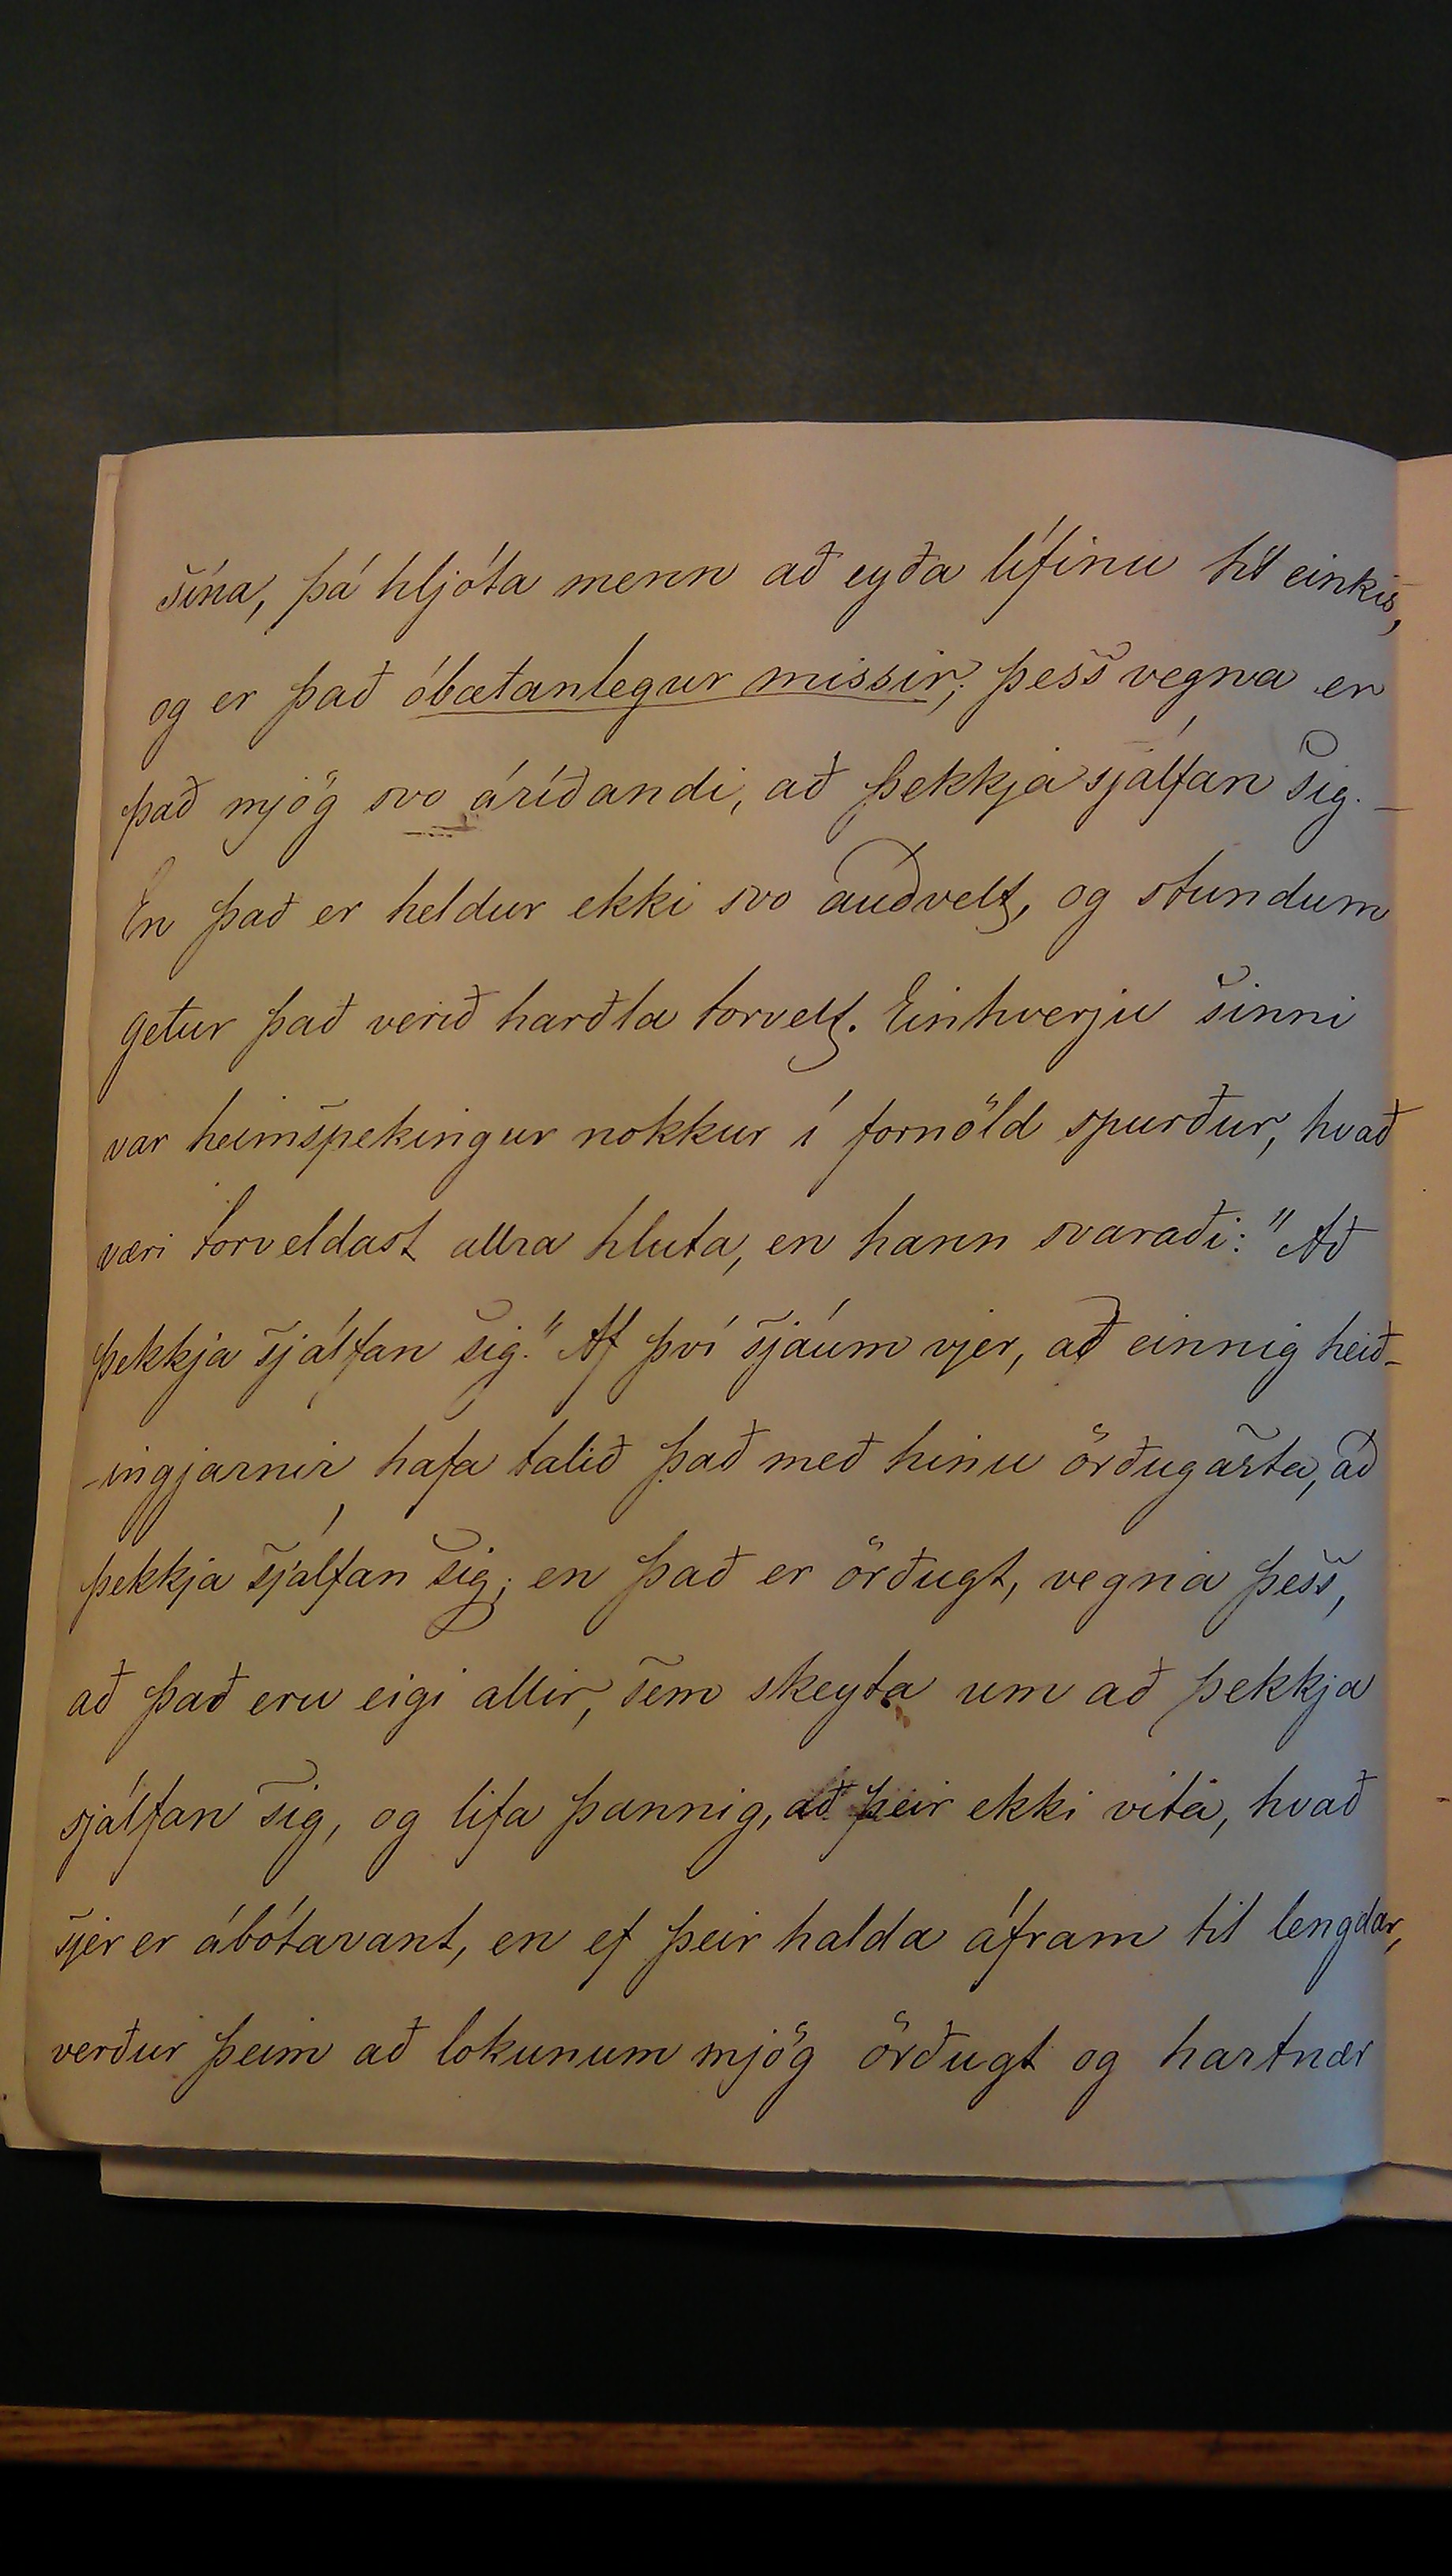 sína, þá hljóta menn að eyða lífinu til einkis,
og er það óbætanlegur missir; þess vegna er
það mjög svo áríðandi, að þekkja sjálfan sig. –
En það er heldur ekki svo auðvelt, og stundum
getur það verið harðla torvelt. Einhverju sinni
var heimspekingur nokkur í fornöld spurður, hvað
væri torveldast allra hluta, en hann svaraði: "Að
þekkja sjálfan sig." Af því sjáum vjer, að einnig heið-
-ingjarnir hafa talið það með hinu örðugasta, að
þekkja sjálfan sig; en það er örðugt, vegna þess,
að það eru eigi allir, sem skeyta um að þekkja
sjálfan sig, og lifa þannig, að þeir ekki vita, hvað
sjer er ábótavant, en ef þeir halda áfram til lengdar,
verður þeim að lokunum mjög örðugt og hartnær